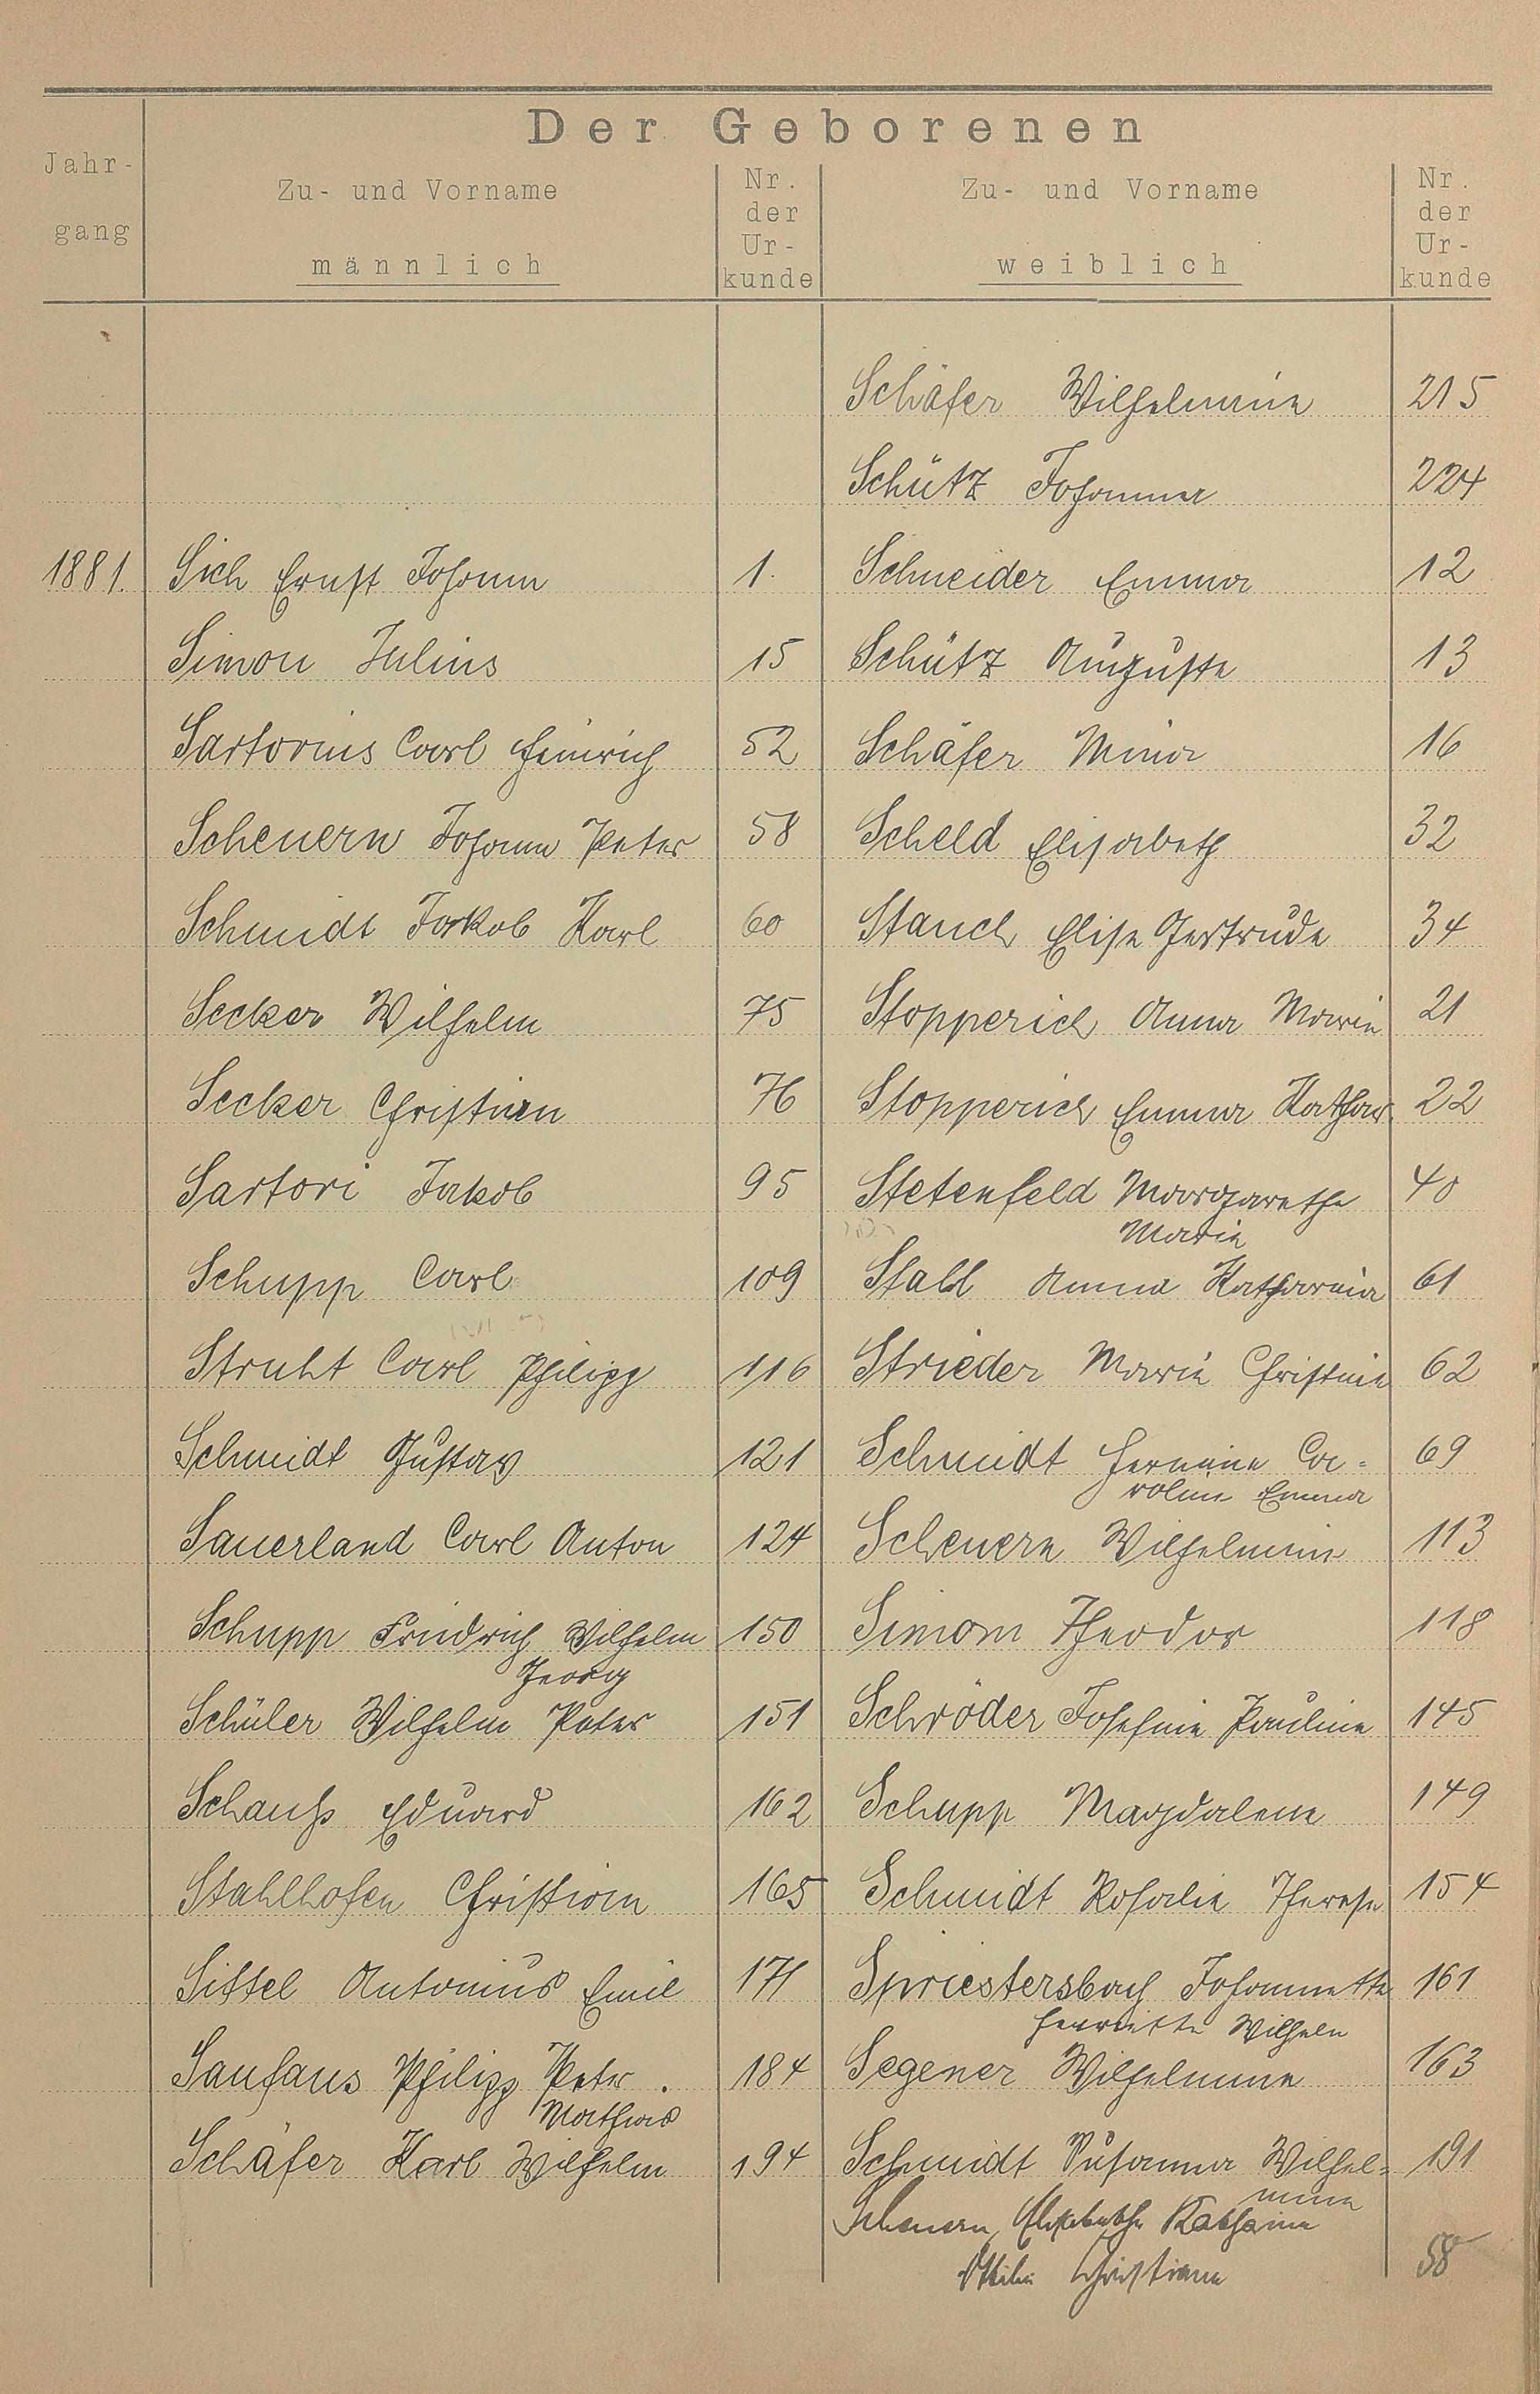 Der Geborenen
Jahr-
gang
Zu- und Vorname
männlich
Nr.
der
Ur-
kunde
Zu- und Vorname
weiblich
Nr.
der
Ur-
kunde
Schäfer Wilhelmine 215
Schütz Johanna 224
1881. Sich Ernst Johann 1. Schneider Emma 12
Simon Julius 15 Schütz Auguste 13
Sartorius Carl Heinrich 52 Schäfer Mina 16
Scheuern Johann Peter 58 Scheld Elisabeth 32
Schmidt Jakob Karl 60 Stauch Elise Gertrude 34
Secker Wilhelm 75 Stopperich Anna Marie 21
Secker Christian 76 Stopperich Emma Kathar. 22
Sartori Jakob 95 Stetenfeld Margarethe 40
Marie
Schupp Carl 109 Stahl Anna Katharina 61
Struht Carl Philipp 116 Strieder Marie Christine 62
Schmidt Gustav 121 Schmidt Hermine Ca= 69
roline Emma
Sauerland Carl Anton 124 Scheuern Wilhelmine 113
Schupp Friedrich Wilhelm 150 Simon Theodor 118
Georg
Schüler Wilhelm Peter 151 Schröder Josefine Pauline 145
Schauß Eduard 162 Schupp Magdalene 149
Stahlhofen Christian 165 Schmidt Rosalie Therese 154
Sittel Antonius Emil 171 Spriestersbach Johannette 161
Henriette Wilhelm
Saufaus Philipp Peter. 184 Segener Wilhelmine 163
Mathias
Schäfer Karl Wilhelm 194 Schmidt Susanna Wilhel= 191
mine
Scheuern, Elisabethe Katharina
Ottilie Christiane 58